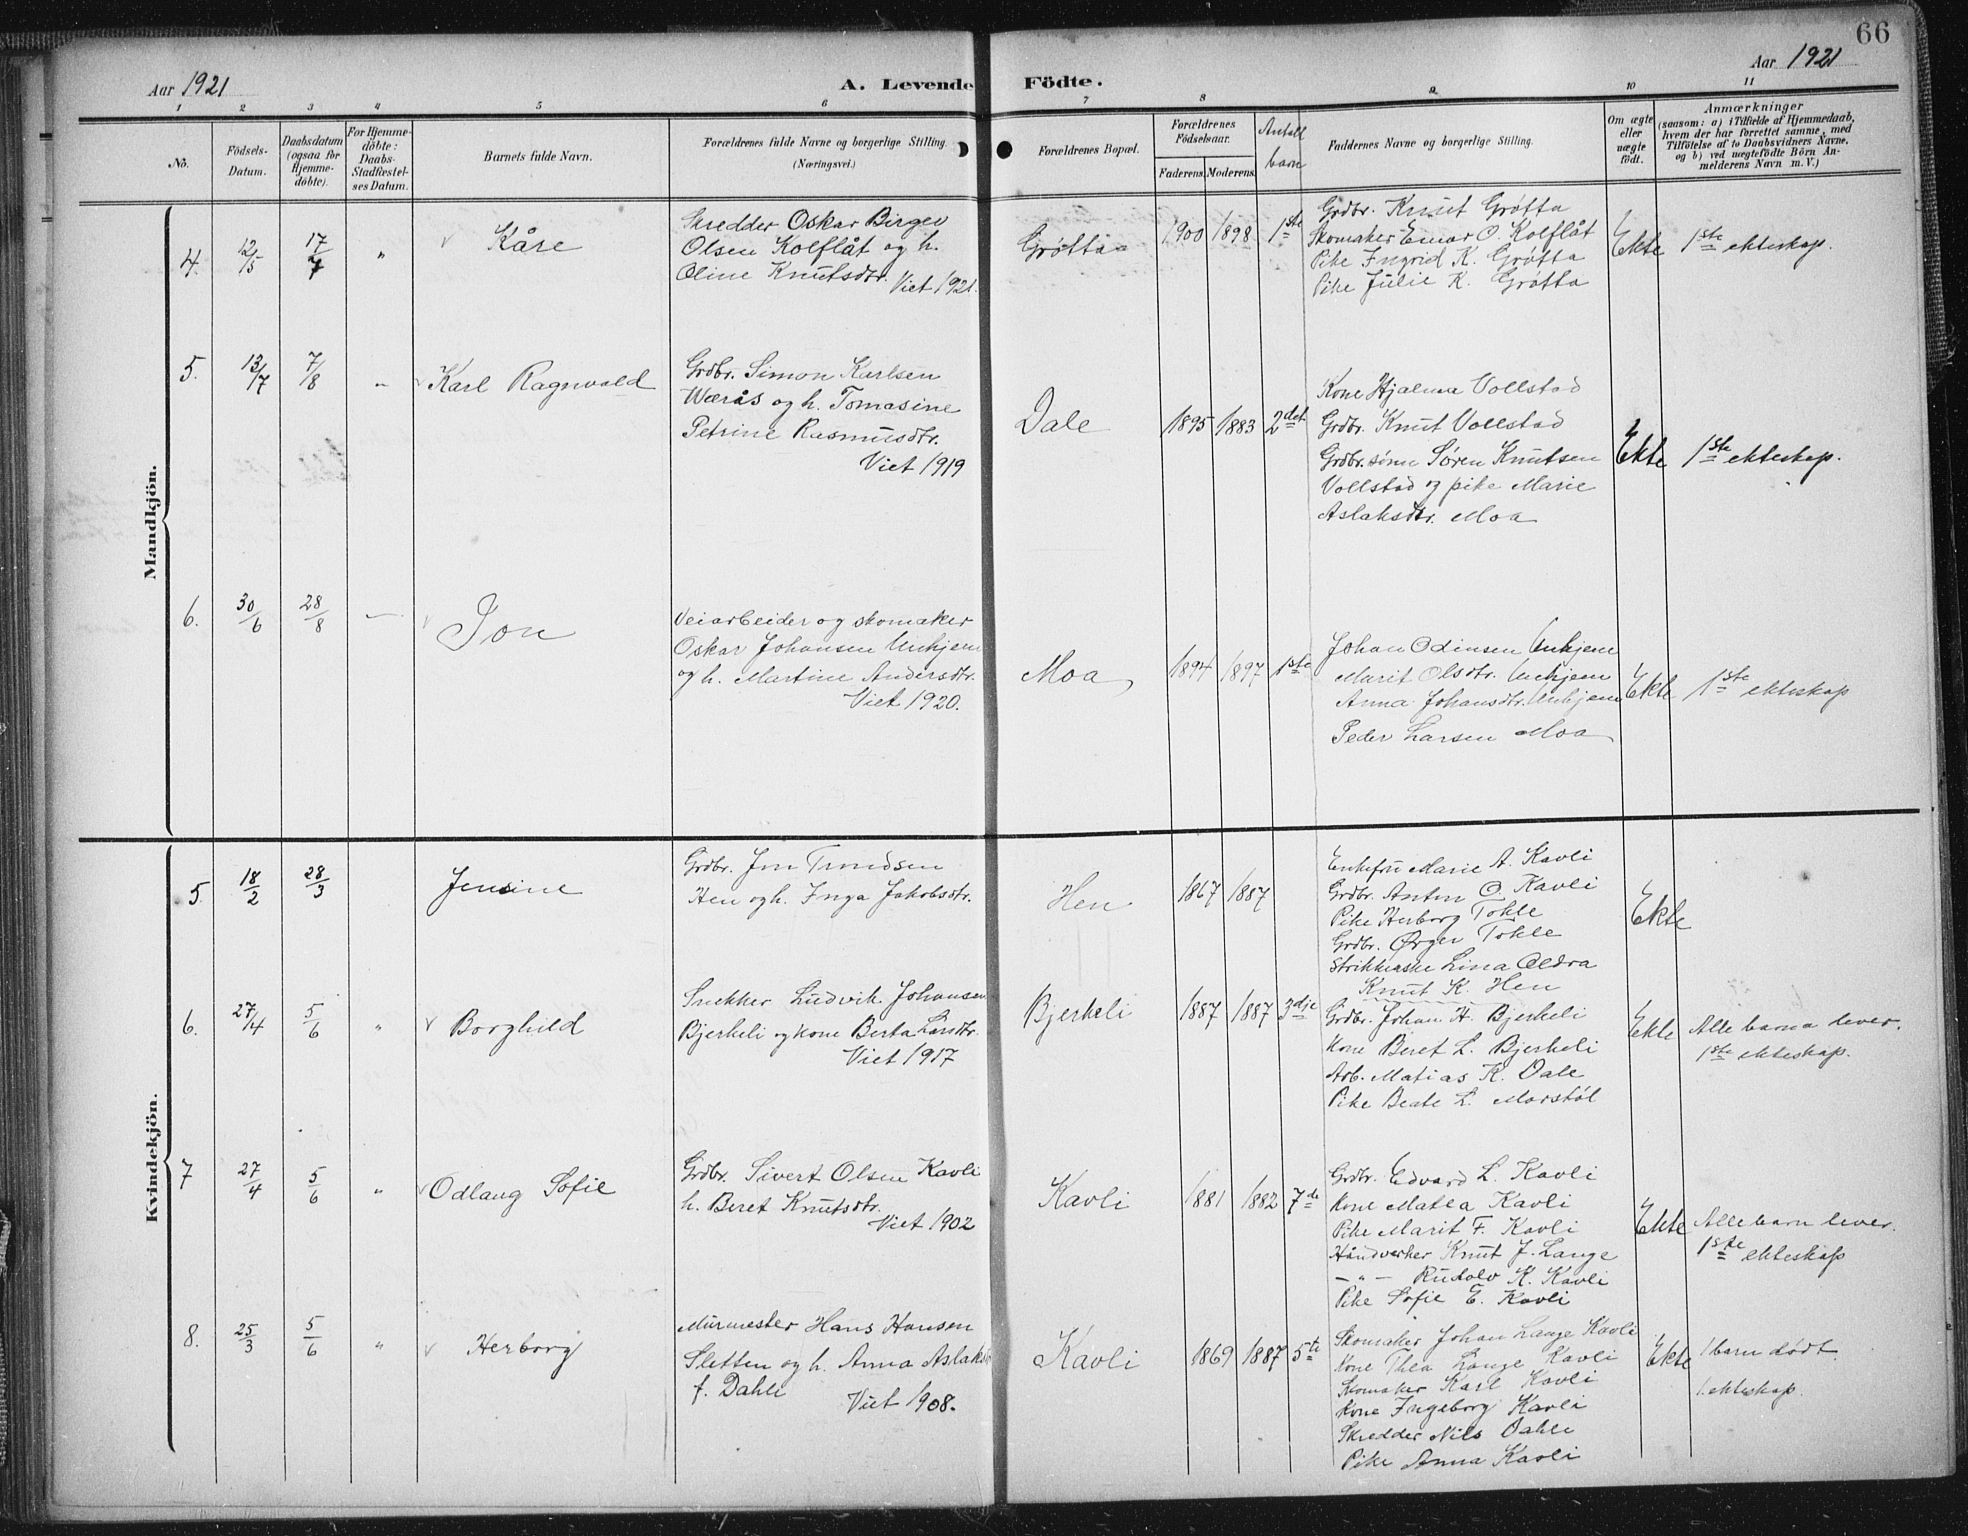 66
Aar 1921
A. Levende Födte.
Aar 1921
1 2 3 4 5 6 7 8 9 10 11
No.
Födsels-Datum.
Daabsdatum (ogsaa for Hjemme-döbte).
For Hjemme-döbte: Daabs-Stadfæstel-ses Datum.
Barnets fulde Navn.
Forældrenes fulde Navne og borgerlige Stilling. (Næringsvei.)
Forældrenes Bopæl.
Forældrenes Födselsaar.
Faderens. Moderens.
Antall barn
Faddernes Navne og borgerlige Stilling.
Om ægte eller uægte födt.
Anmærkninger
(saasom: a) i Tilfælde af Hjemmedaab,
hvem der har forrettet samme, med
Tilföielse af to Daabsvidners Navne,
og b) ved uægtefödte Börn An-
melderens Navn m. V.)
Mandkjön.
4. 12/5 17/7 " Kåre
Skredder Oskar Birger
Olsen Kolflåt og h.
Oline Knutsdtr.
Viet 1921.
Grøtta 1900 1898 1ste
Grdbr. Knut Grøtta
Skomaker Einar O. Kolflåt
Pike Ingrid K. Grøtta
Pike Julie K. Grøtta
Ekte 1ste ekteskap.
5. 13/7 7/8 " Karl Ragnvald
Grdbr. Simon Karlsen
Werås og h. Tomasine
Petrine Rasmusdtr.
Viet 1919
Dale 1895 1883 2det
Kone Hjalma Vollstad
Grdbr. Knut Vollstad
Grdbr.sønn Søren Knutsen
Vollstad og pike Marie
Aslaksdtr. Moa
Ekte 1ste ekteskap.
6. 30/6 28/8 — Jon
Veiarbeider og skomaker
Oskar Johansen Unhjem
og h. Martine Andersdtr.
Viet 1920.
Moa 1894 1897 1ste
Johan Odinsen Unhjem
Marit Olsdtr. Unhjem
Anna Johansdtr. Unhjem
Peder Larsen Moa
Ekte 1ste ekteskap
Kvindekjön.
5. 18/2 28/3 Jensine
Grdbr. Jon Trondsen
Hen og h. Inga Jakobsdtr.
Hen 1867 1887
Enkefru Marie A. Kavli
Grdbr. Anton O. Kavli
Pike Herborg Tokle
Grdbr. Ørger Tokle
Strikkerske Lina Oldra
Knut K. Hen
Ekte
6. 27/4 5/6 " Borghild
Snekker Ludvik Johansen
Bjerkeli og kone Berta Larsdtr.
Viet 1917
Bjerkeli 1887 1887 3dje
Grdbr. Johan H. Bjerkeli
Kone Beret L. Bjerkeli
Arb. Matias K. Dale
Pike Beate L. Morstøl
Ekte Alle barna lever.
1ste ekteskap.
7 27/4 5/6 " Odlaug Sofie
Grdbr. Sivert Olsen Kavli
h. Beret Knutsdtr.
Viet 1902
Kavli 1881 1882 7de
Grdbr. Edvard L. Kavli
Kone Matea Kavli
Pike Marit F. Kavli
Håndverker Knut J. Lange
— " — Rudolv K. Kavli
Pike Sofie E. Kavli
Ekte Alle barn lever.
1ste ekteskap
8. 25/3 5/6 " Herborg
Murmester Hans Hansen
Sletten og h. Anna Aslaksd
f. Dahle
Viet 1908.
Kavli 1869 1887 5te
Skomaker Johan Lange Kavli
Kone Thea Lange Kavli
Skomaker Karl Kavli
Kone Ingeborg Kavli
Skredder Nils Dahle
Pike Anna Kavli
Ekte 1 barn dødt.
1. ekteskap.